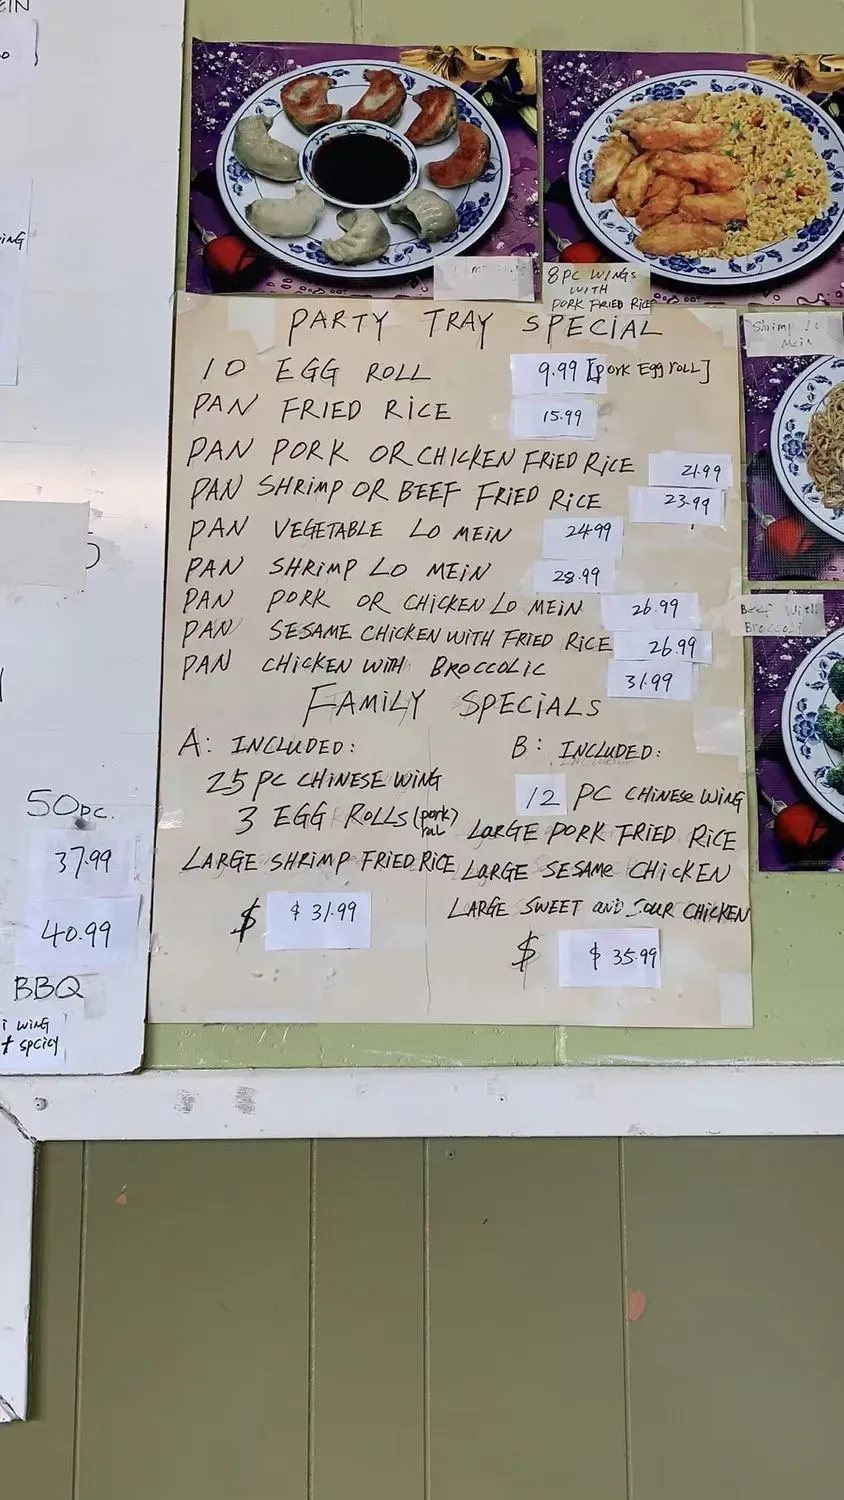 8PC WINGS
WITH
PORK FRIED RICE
PARTY TRAY SPECIAL
10 EGG ROLL 9.99 [Pork Egg roll]
PAN FRIED RICE 15.99
PAN PORK OR CHICKEN FRIED RICE 21.99
PAN SHRIMP OR BEEF FRIED RICE 23.99
PAN VEGETABLE LO MEIN 24.99
PAN SHRIMP LO MEIN 28.99
PAN PORK OR CHICKEN LO MEIN 26.99
PAN SESAME CHICKEN WITH FRIED RICE 26.99
PAN CHICKEN WITH BROCCOLIC 31.99
FAMILY SPECIALS
A: INCLUDED:
25 PC CHINESE WING
3 EGG ROLLS (pork)
LARGE SHRIMP FRIED RICE
$ $31.99
B: INCLUDED:
12 PC CHINESE WING
LARGE PORK FRIED RICE
LARGE SESAME CHICKEN
LARGE SWEET and SOUR CHICKEN
$ $35.99
Shrimp Lo
Mein
Beef With
Broccoli
WING
50 pc.
37.99
40.99
BBQ
WING
spciy